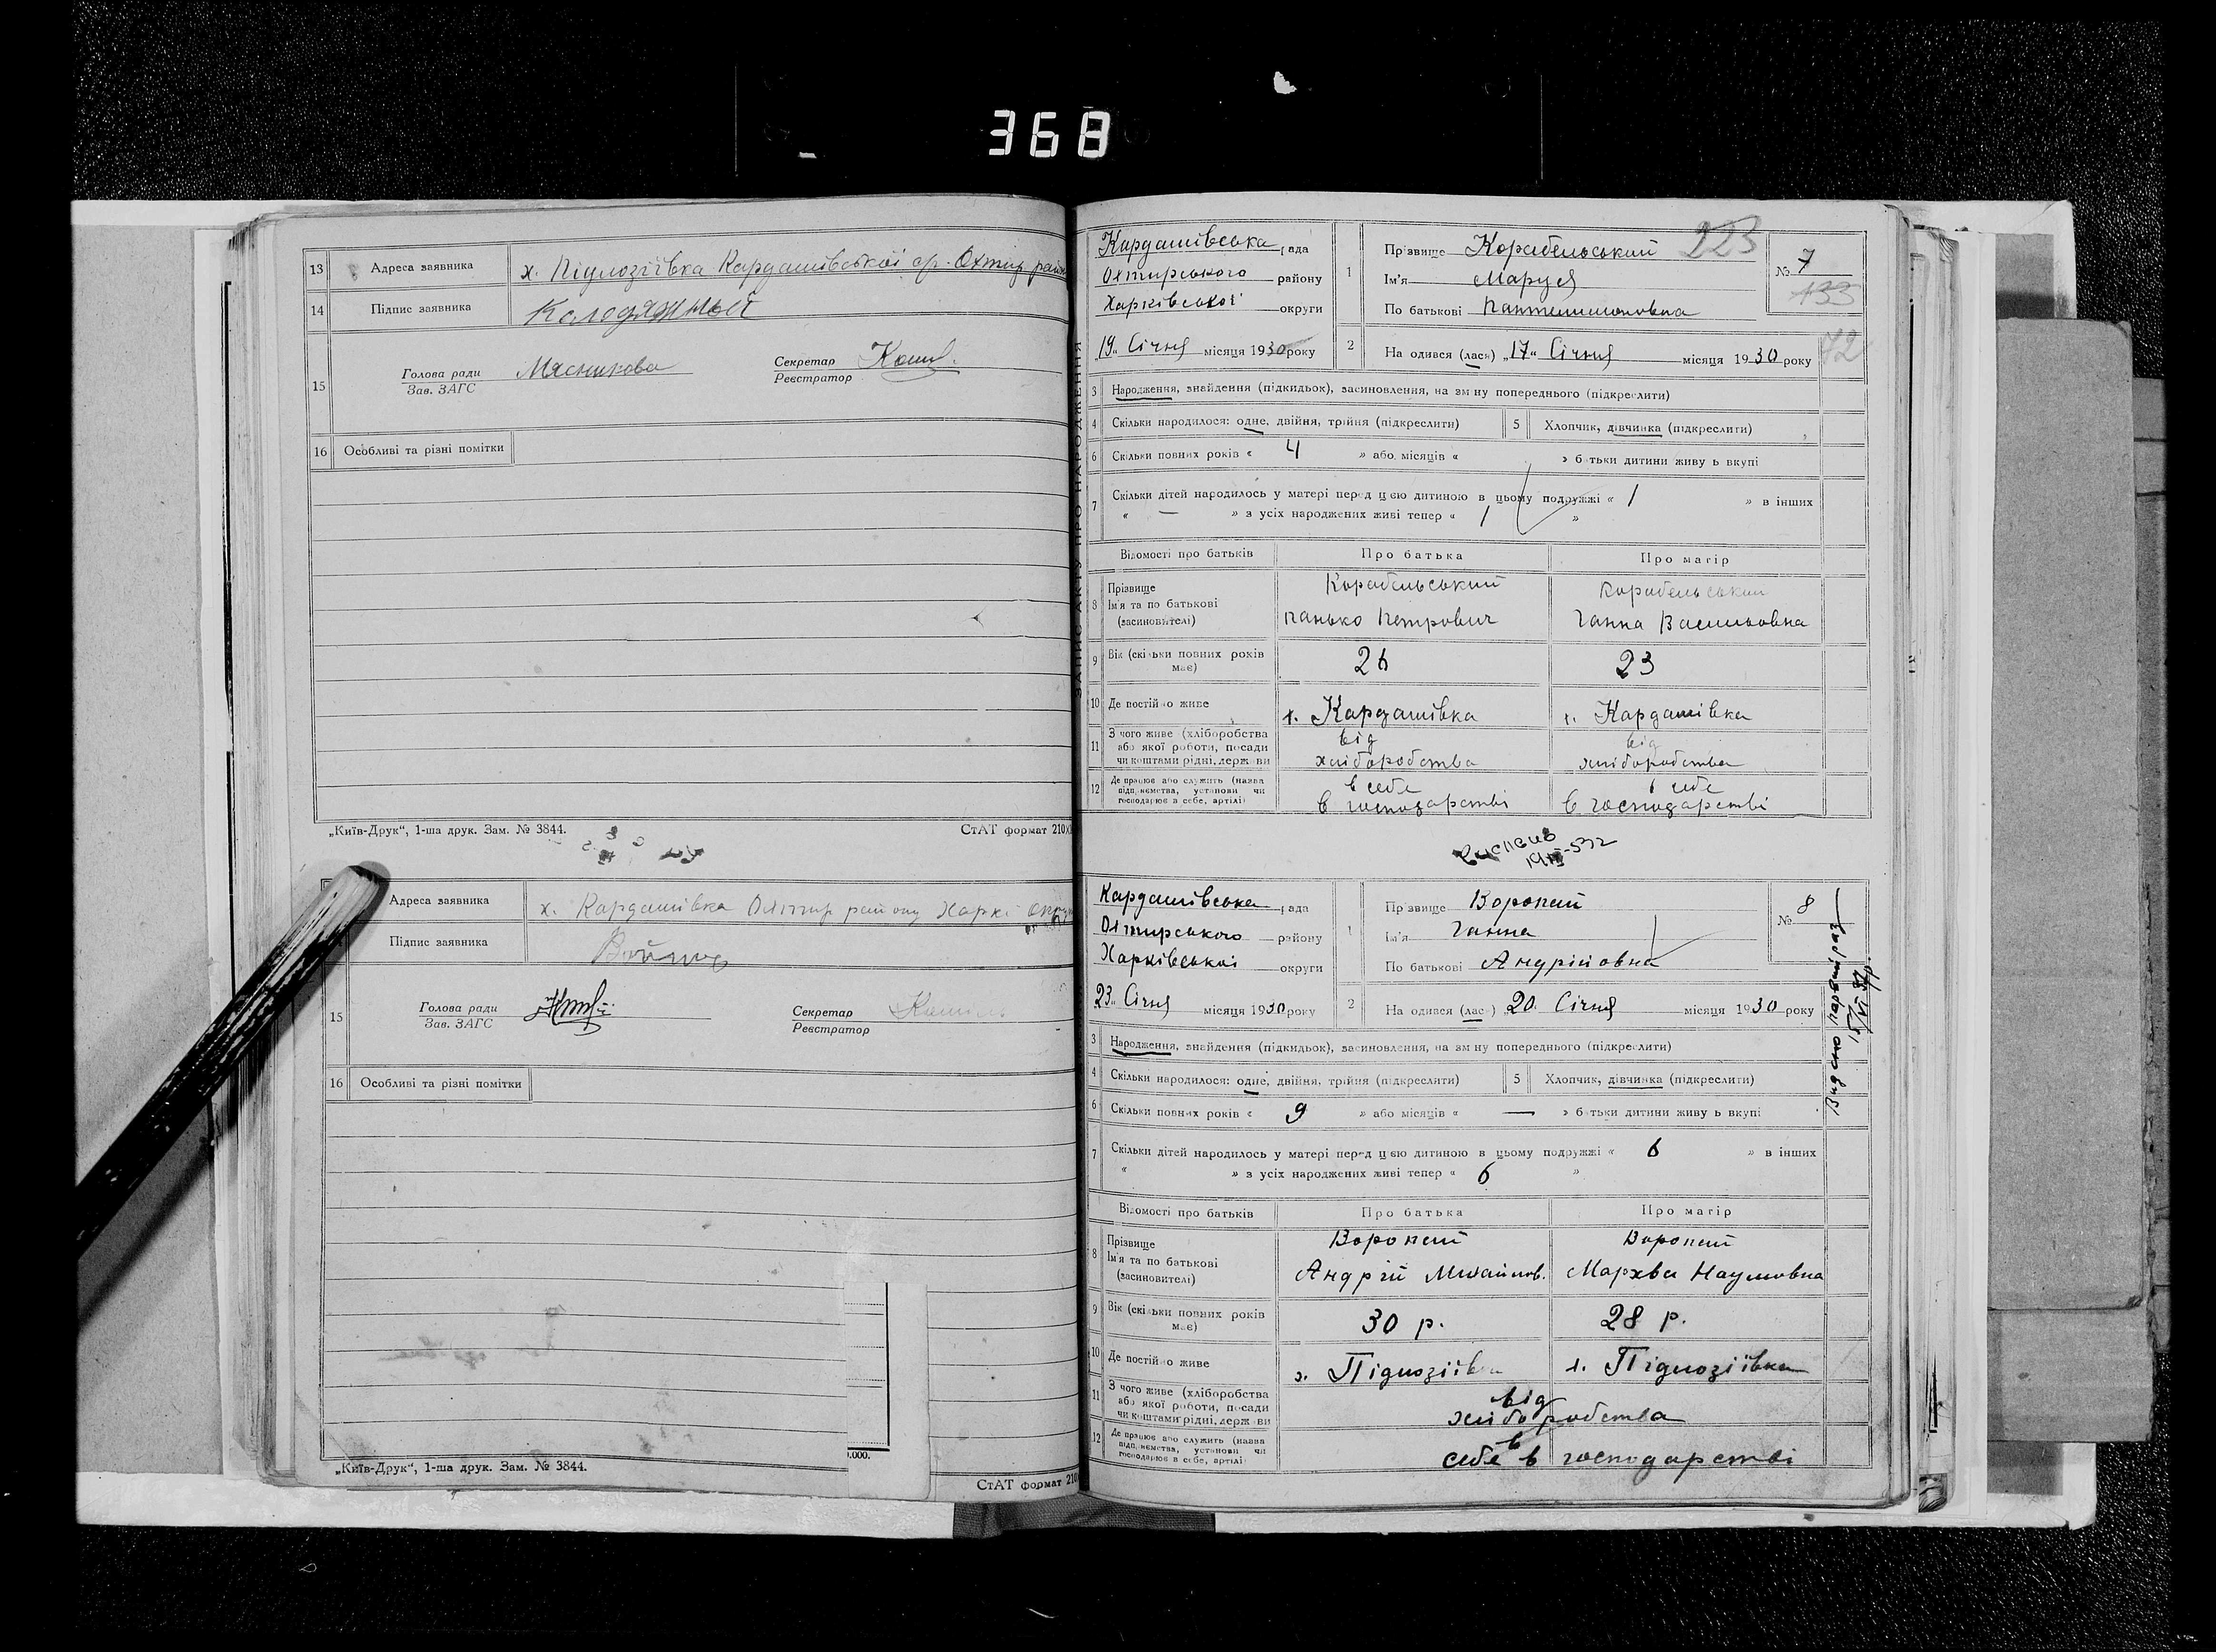 368
13 Адреса заявника х. Підлозіївка Кардашівської с/р. Охтир. район
14 Підпис заявника Колодяжный
15 Голова ради Мясникова Секретар
Зав. ЗАГС Реєстратор
16 Особливі та різні помітки
„Київ-Друк“, 1-ша друк. Зам. № 3844. СтАТ формат 210
Адреса заявника х. Кардашівка Охтир району Харкі Округи
Підпис заявника
15 Голова ради Секретар
Зав. ЗАГС Реєстратор
16 Особливі та різні помітки
.000.
„Київ-Друк“, 1-ша друк. Зам. № 3844.
СтАТ формат 210
ЗАПИС АКТУ ПРО НАРОДЖЕННЯ
Кардашівська рада
Охтирського району
Харківської округи
„19“ Січня місяця 1930 року
1 Прізвище Корабельський 223
Ім'я Маруся
По батькові Пантелимоновна
№ 7
133
72
2 На одився (лась) „17“ Січня місяця 1930 року
3 Народження, знайдення (підкидьок), засиновлення, на зм ну попереднього (підкреслити)
4 Скільки народилося: одне, двійня, трійня (підкреслити) 5 Хлопчик, дівчинка (підкреслити)
6 Скільки повних років « 4 » або місяців « » б тьки дитини живу ь вкупі
7 Скільки дітей народилось у матері перед цією дитиною в цьому подружжі « 1 » в інших
« — » з усіх народжених живі тепер « 1 »
Відомості про батьків Про батька Про матір
8 Прізвище Корабельський Корабельський
Ім'я та по батькові
(засиновителі) Панько Петрович Ганна Васильовна
9 Вік (скільки повних років має) 26 23
10 Де постійно живе х. Кардашівка х. Кардашівка
11 З чого живе (хліборобства від від
або якої роботи, посади
чи коштами рідні, держави хліборобства хліборобства
12 Де працює або служить (назва в себе в себе
підприємства, установи чи
господарює в себе, артілі) в господарстві в господарстві
Кардашівська рада
Охтирського району
Харківської округи
23“ Січня місяця 1930 року
1 Прізвище Воропай
Ім'я Ганна
По батькові Андрійовна
№ 8
2 На одився (лась) „20. Січня місяця 1930 року
3 Народження, знайдення (підкидьок), засиновлення, на зм ну попереднього (підкреслити)
4 Скільки народилося: одне, двійня, трійня (підкреслити) 5 Хлопчик, дівчинка (підкреслити)
6 Скільки повних років « 9 » або місяців « — » б тьки дитини живу ь вкупі
7 Скільки дітей народилось у матері перед цією дитиною в цьому подружжі « 6 » в інших
« » з усіх народжених живі тепер « 6 »
Відомості про батьків Про батька Про матір
8 Прізвище Воропай Воропай
Ім'я та по батькові
(засиновителі) Андрій Михайлов. Мархва Наумовна
9 Вік (скільки повних років має) 30 р. 28 р.
10 Де постійно живе х. Підлозіївка х. Підлозіївка
11 З чого живе (хліборобства від
або якої роботи, посади
чи коштами рідні, держави хліборобства
12 Де працює або служить (назва в
підприємства, установи чи
господарює в себе, артілі) себе в господарстві